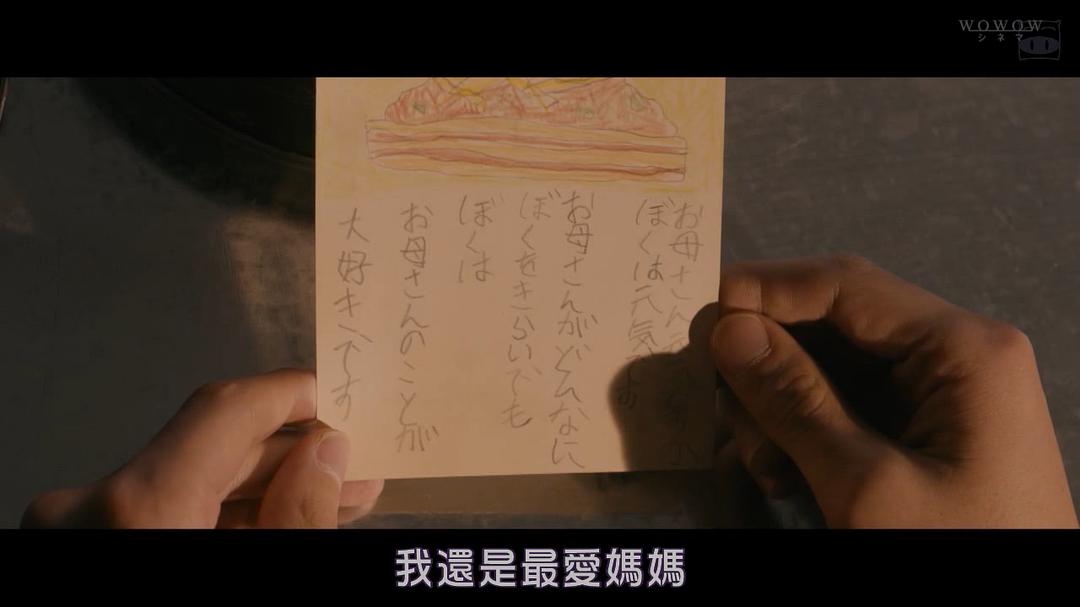 WOWOW
シネマ
お母さん
ぼくは元気
お母さんがどんなに
ぼくをきらいでも
ぼくは
お母さんのことが
大好きです
我還是最愛媽媽